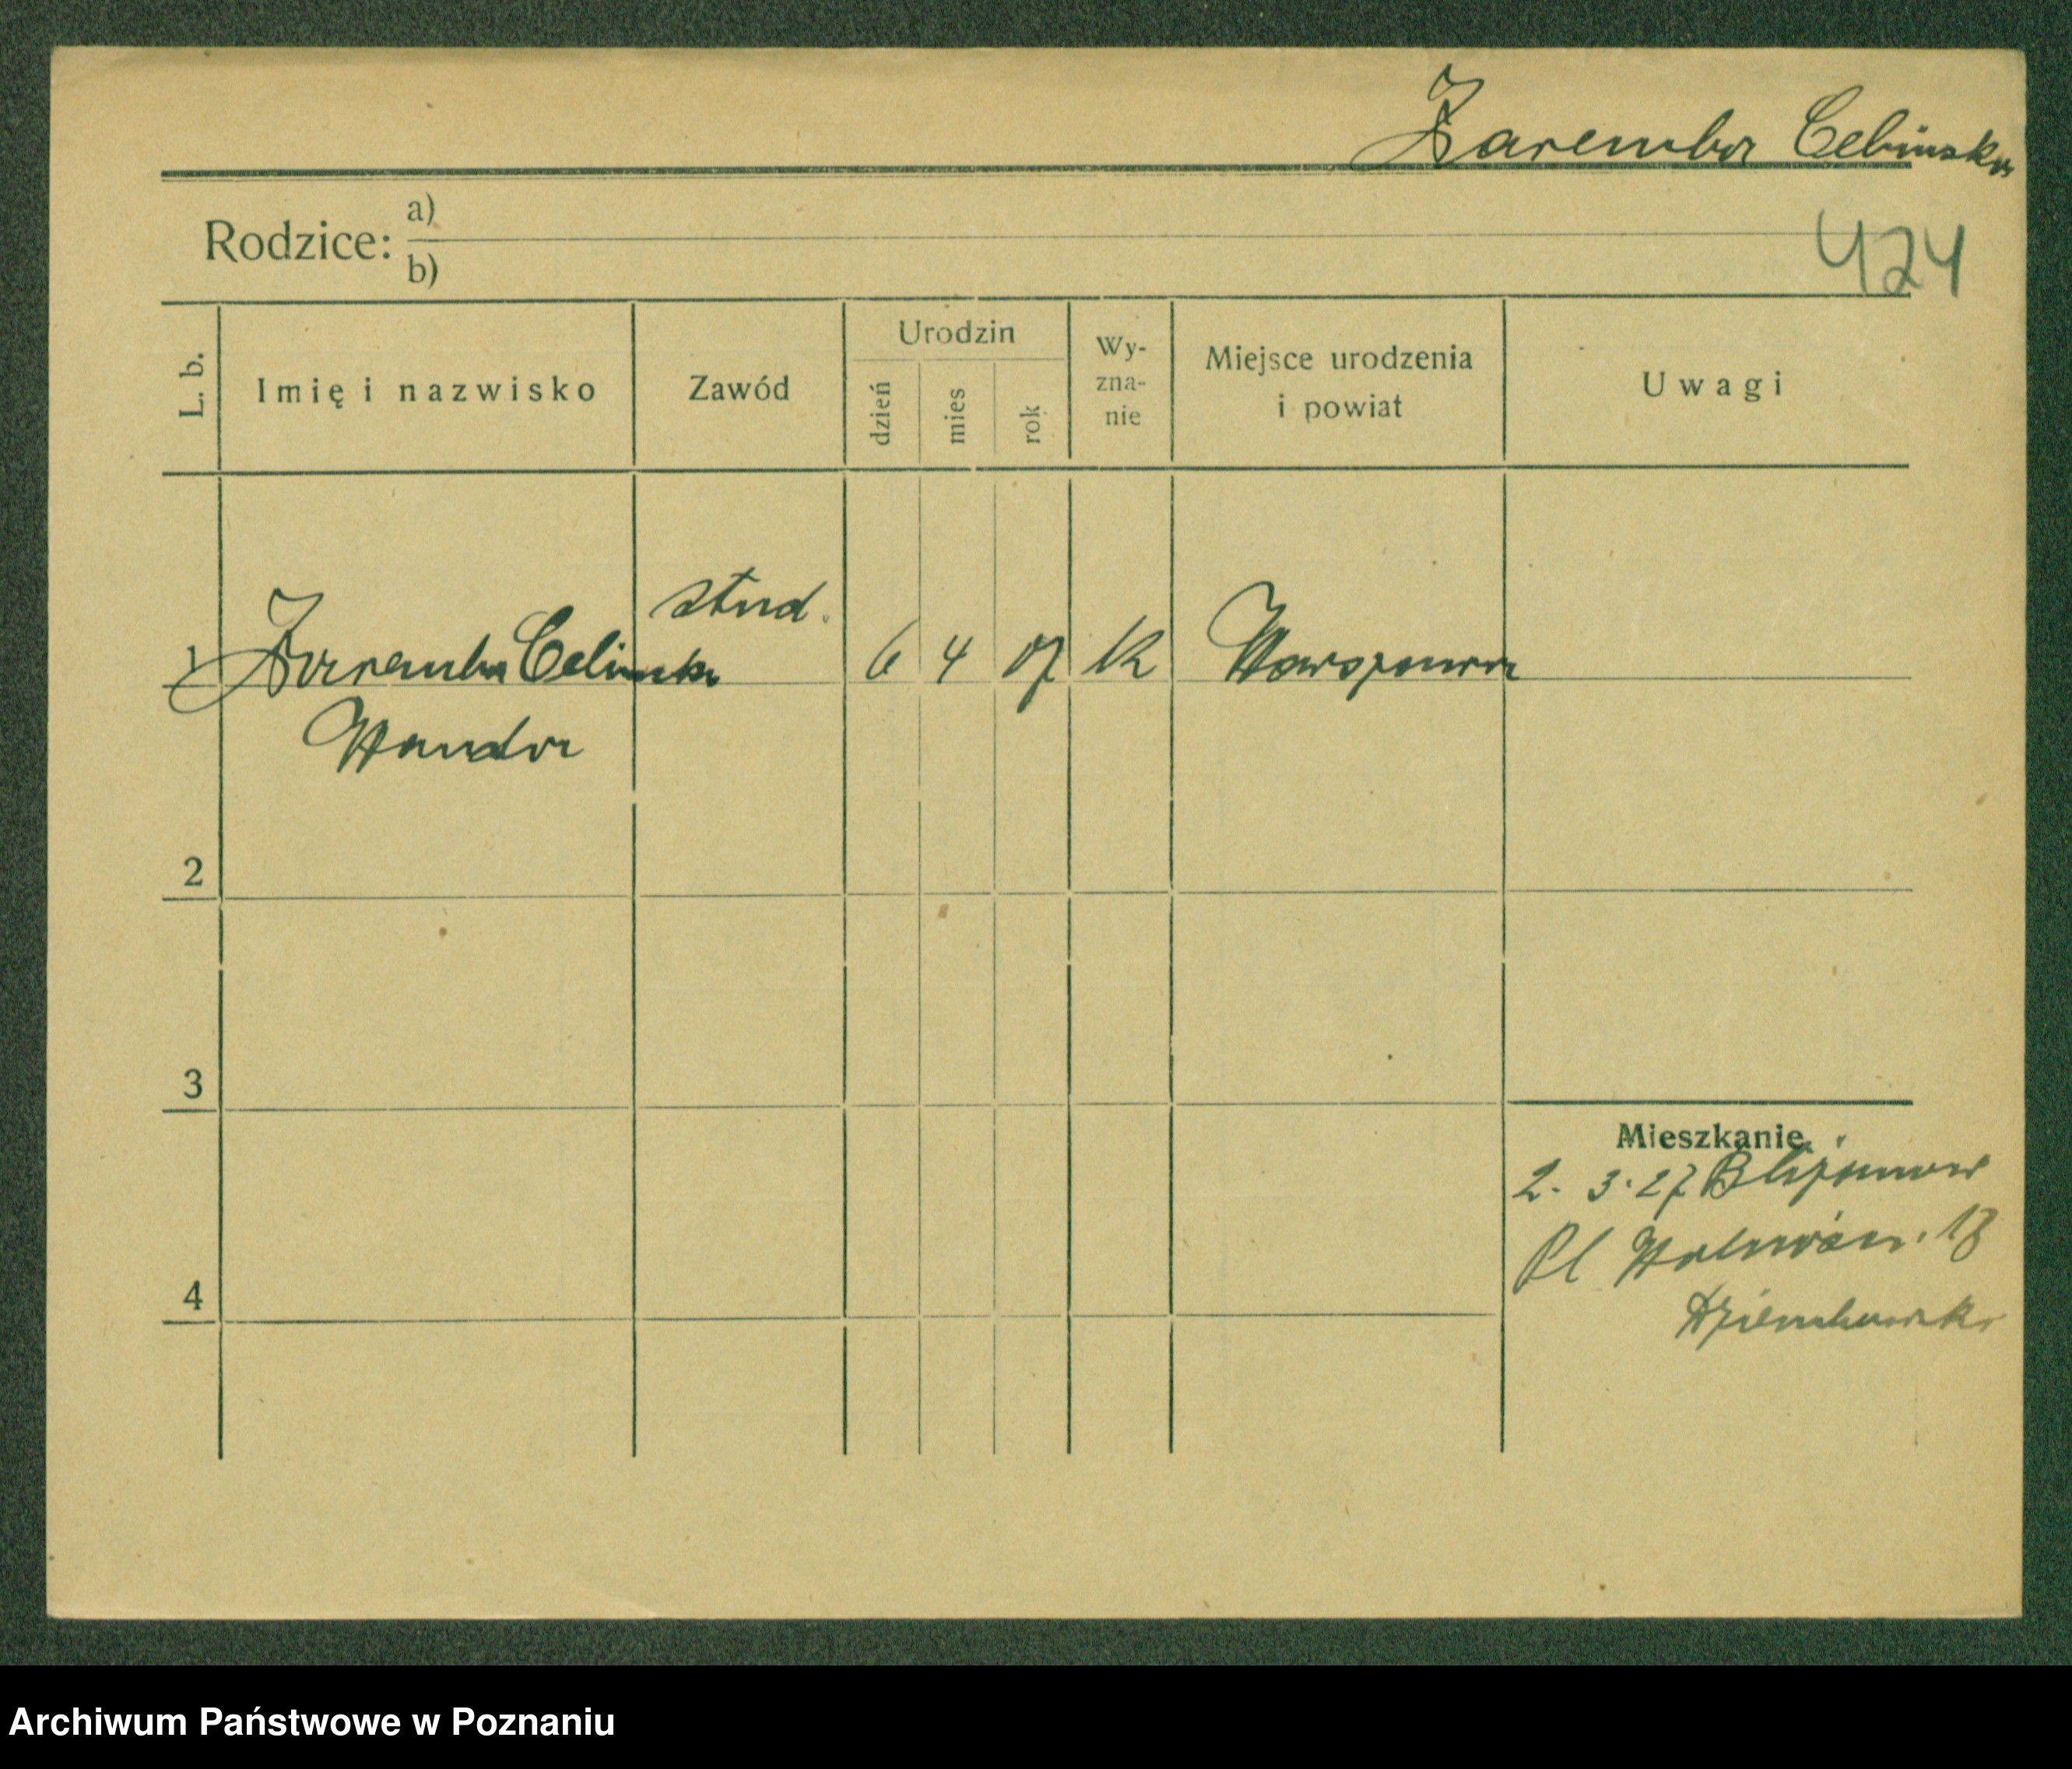 Zaremba Celinska
Rodzice: a)
b)
424
L. b. Imię i nazwisko Zawód Urodzin dzień mies rok Wy-zna-nie Miejsce urodzenia i powiat Uwagi
stud.
1 Zaremba Celinska 6 4 07 K Warszawa
Wanda
2
3
Mieszkanie
2. 3. 27
Pl Wolności. 18
4
Dziembowski
Archiwum Państwowe w Poznaniu